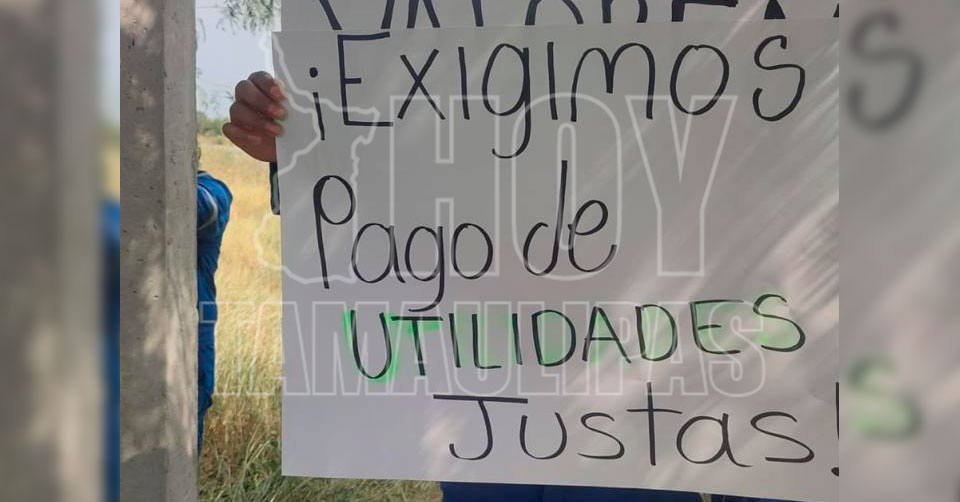 ¡Exigimos
Pago de
UTILIDADES
Justas!
HOY
TAMAULIPAS